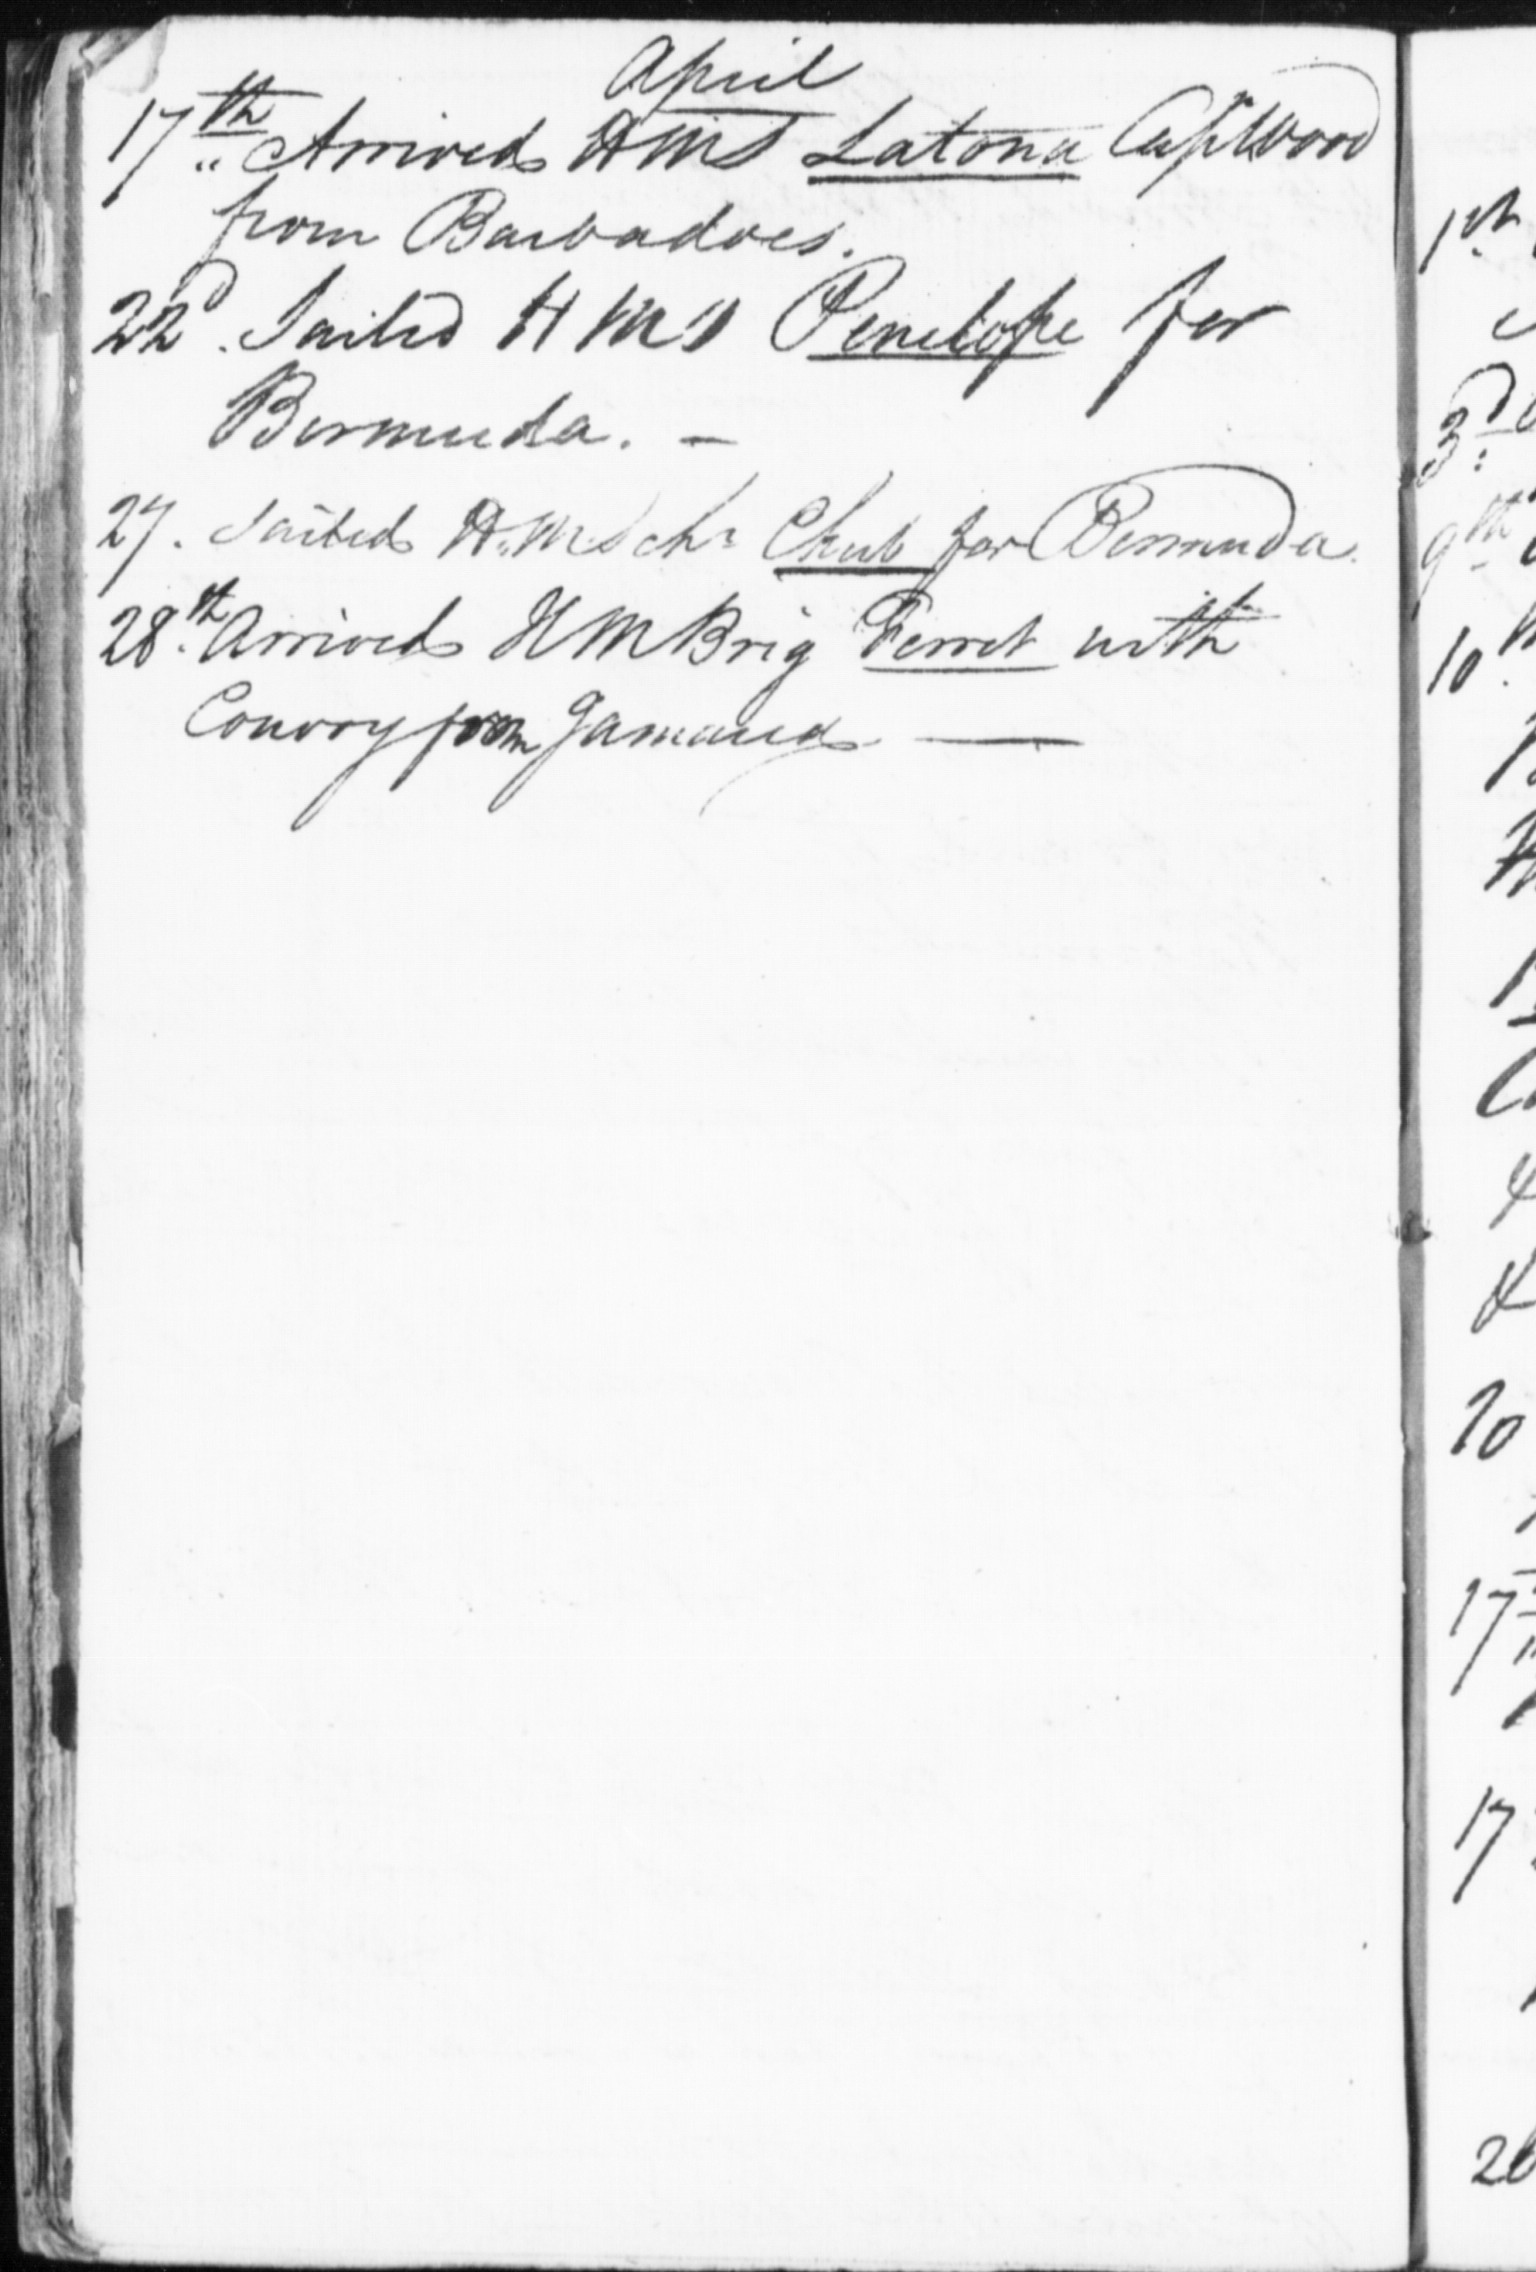 April
17th Arrived HMS Latona Capt Wood
from Barbadoes.
22d. Sailed HMS Penelope for
Bermuda. –
27. Sailed H.M. Schr Chub for Bermuda.
28th. Arrived HM Brig Ferret with
Convoy from Jamaica —
1st
3d:
9th
10th
20
17
17